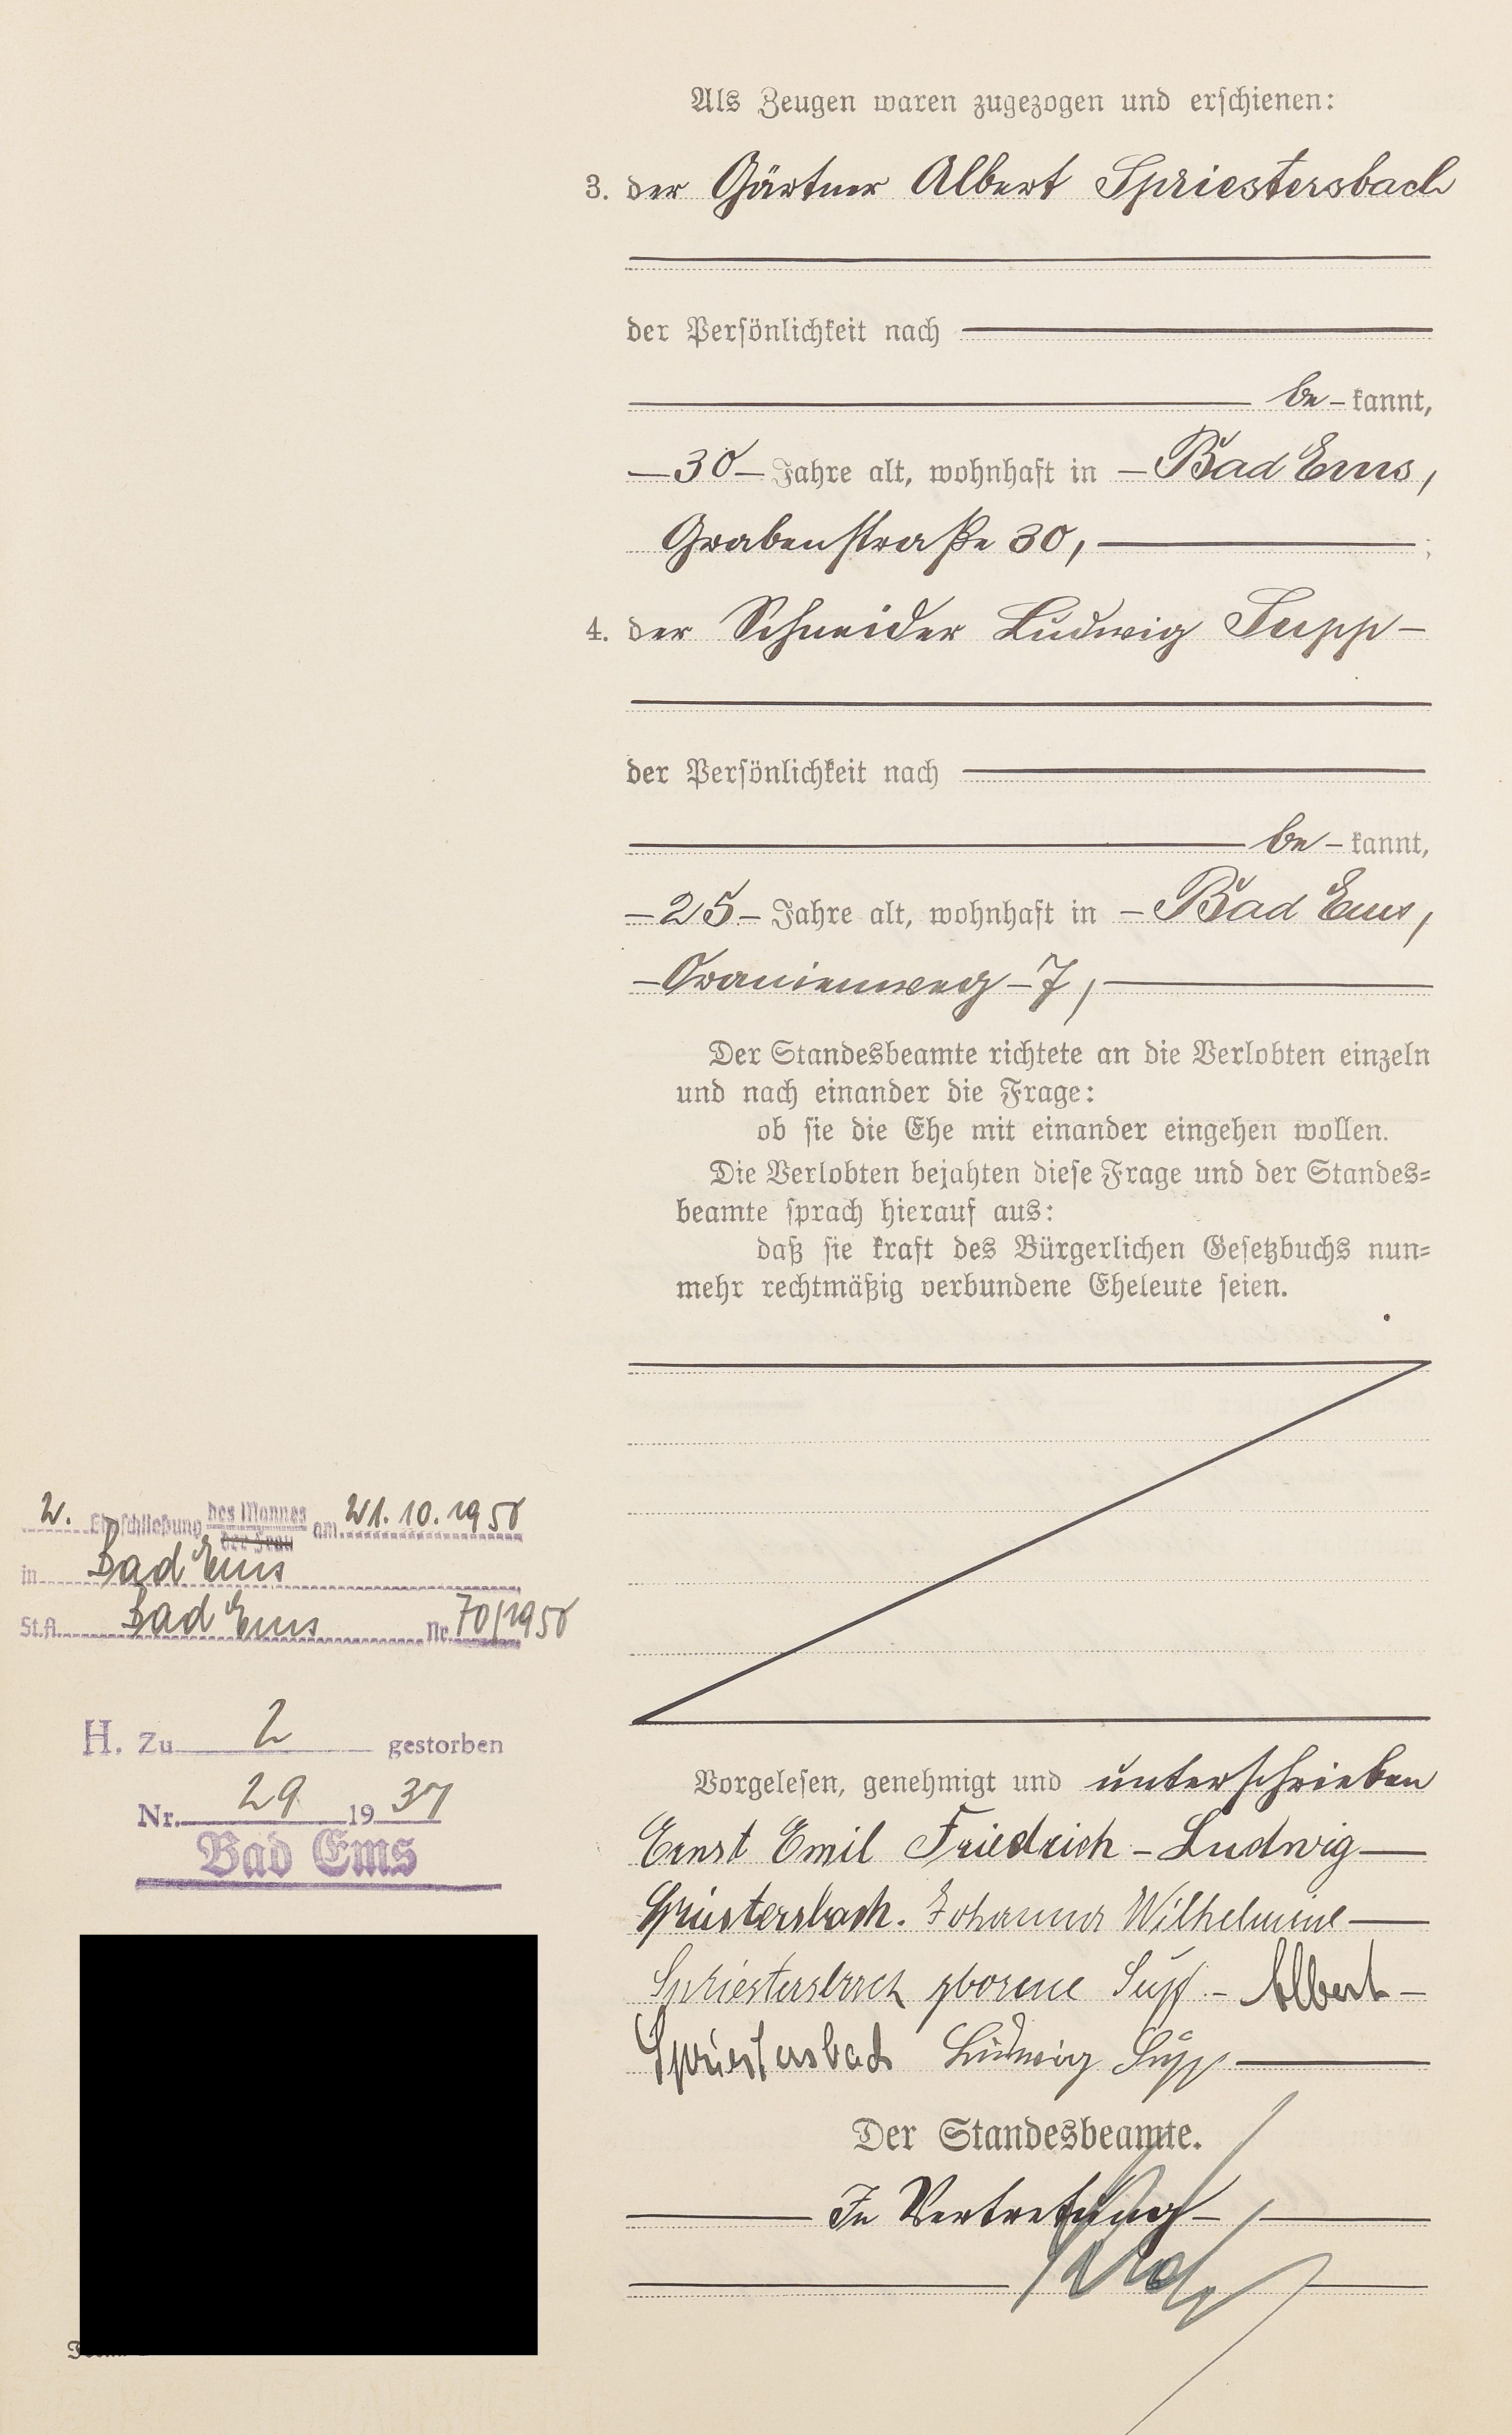 Als Zeugen waren zugezogen und erschienen:
3. der Gärtner Albert Spriestersbach
der Persönlichkeit nach
be- kannt,
-30- Jahre alt, wohnhaft in - Bad Ems,
Grabenstraße 30, ;
4. der Schneider Ludwig Supp -
der Persönlichkeit nach
be- kannt,
-25- Jahre alt, wohnhaft in - Bad Ems,
- Oranienweg - 7,
Der Standesbeamte richtete an die Verlobten einzeln
und nach einander die Frage:
ob sie die Ehe mit einander eingehen wollen.
Die Verlobten bejahten diese Frage und der Standes=
beamte sprach hierauf aus:
daß sie kraft des Bürgerlichen Gesetzbuchs nun=
mehr rechtmäßig verbundene Eheleute seien.
2. Eheschließung des Mannes der Frau am 21.10.1950
in Bad Ems
St.A. Bad Ems Nr. 70/1950
H. Zu 2 gestorben
Nr. 29 1937
Bad Ems
Vorgelesen, genehmigt und unterschrieben
Ernst Emil Friedrich - Ludwig
Spriestersbach. Johanna Wilhelmine
Spriestersbach geborene Supp. - Albert -
Spriestersbach Ludwig Supp
Der Standesbeamte.
In Vertretung -